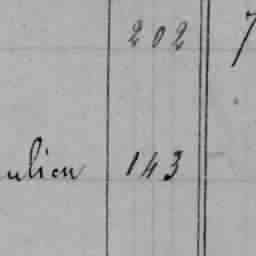 202 7
ulien 143